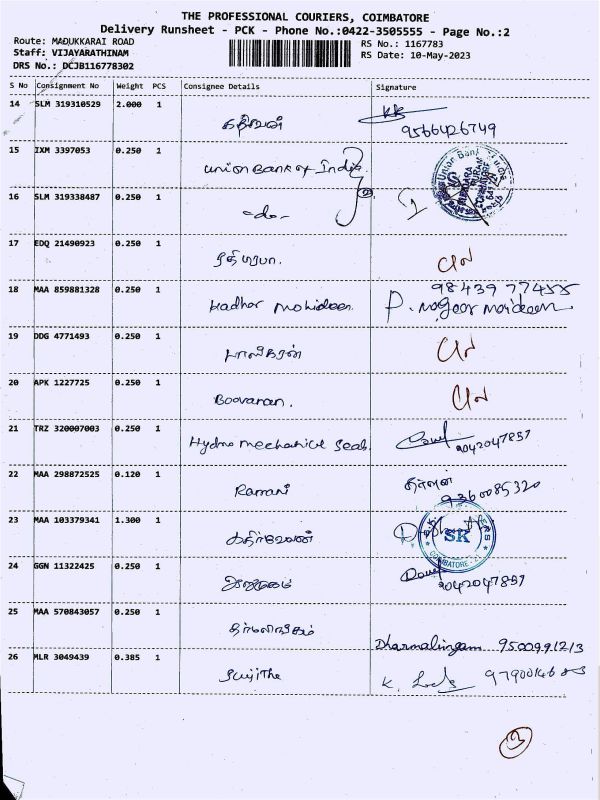 THE PROFESSIONAL COURIERS, COIMBATORE
Delivery Runsheet - PCK - Phone No.:0422-3505555 - Page No.:2
Route: MADUKKARAI ROAD
RS No.: 1167783
Staff: VIJAYARATHINAM
RS Date: 10-May-2023
DRS No.: DCJB116778302
S No Consignment No Weight PCS Consignee Details Signature
14 SLM 319310529 2.000 1
கதிர்வேல் 9566426749
15 IXM 3397053 0.250 1
Union Bank of India
16 SLM 319338487 0.250 1
-do-
17 EDQ 21490923 0.250 1
18 MAA 859881328 0.250 1 98439 77455
Hadhar Mohideen. P. Nagoor Maideen
19 DDG 4771493 0.250 1
20 APK 1227725 0.250 1
Boovanan.
21 TRZ 320007003 0.250 1
Hydro Mechanical Seals. 9042047857
22 MAA 298872525 0.120 1
Ramani 9360085320
23 MAA 103379341 1.300 1
கதிர்வேல் SK
COIMBATORE - 21
24 GGN 11322425 0.250 1
9042047857
25 MAA 570843057 0.250 1
தர்மலிங்கம் Dharmalingam 9500991213
26 MLR 3049439 0.385 1
Sujithe K.
3